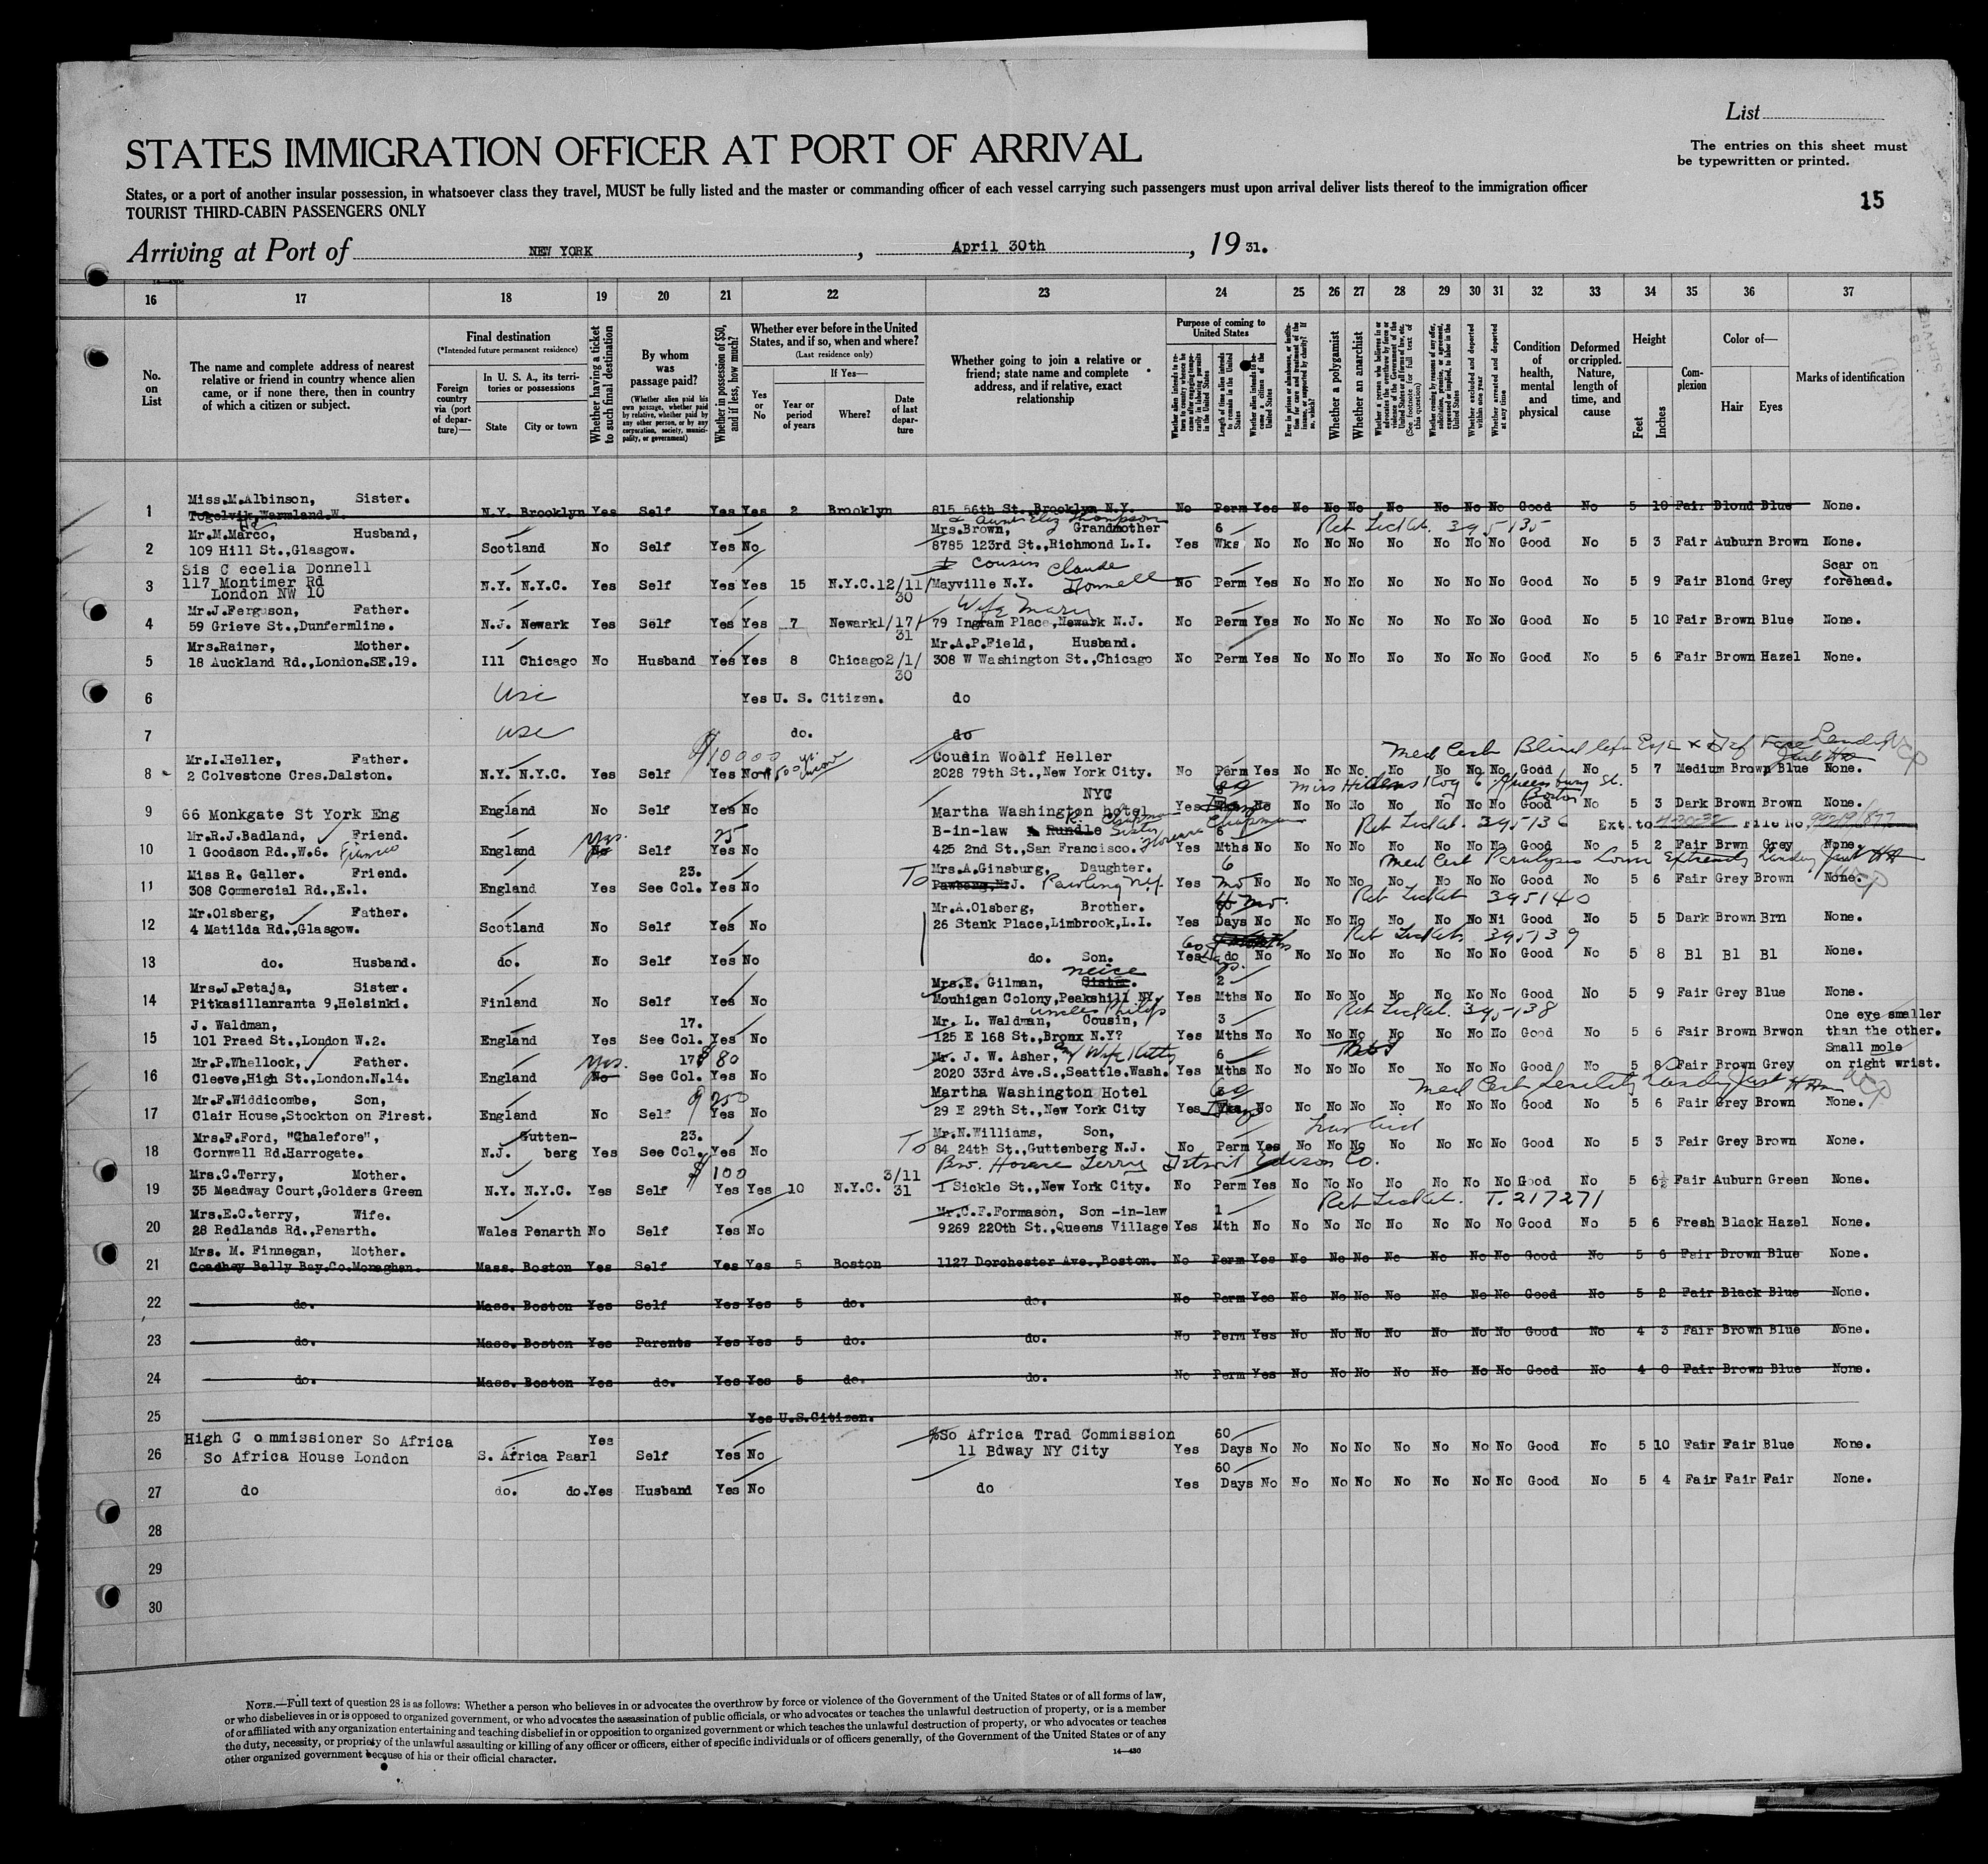 List
STATES IMMIGRATION OFFICER AT PORT OF ARRIVAL
The entries on this sheet must
be typewritten or printed.
States, or a port of another insular possession, in whatsoever class they travel, MUST be fully listed and the master or commanding officer of each vessel carrying such passengers must upon arrival deliver lists thereof to the immigration officer
TOURIST THIRD-CABIN PASSENGERS ONLY
15
Arriving at Port of NEW YORK , April 30th , 19 31.
16 17 18 19 20 21 22 23 24 25 26 27 28 29 30 31 32 33 34 35 36 37
No. on List
The name and complete address of nearest relative or friend in country whence alien came, or if none there, then in country of which a citizen or subject.
Final destination
(*Intended future permanent residence)
Foreign country via (port of departure)—
In U. S. A., its territories or possessions
State City or town
Whether having a ticket to such final destination
By whom was passage paid?
(Whether alien paid his own passage, whether paid by relative, whether paid by any other person, or by any corporation, society, municipality, or government)
Whether in possession of $50, and if less, how much?
Whether ever before in the United States, and if so, when and where?
(Last residence only)
Yes or No
If Yes—
Year or period of years
Where?
Date of last departure
Whether going to join a relative or friend; state name and complete address, and if relative, exact relationship
Purpose of coming to United States
Length of time alien intends to remain in the United States
Whether alien intends to become a citizen of the United States
Whether a polygamist
Whether an anarchist
Whether excluded and deported within one year
Whether arrested and deported at any time
Condition of health, mental and physical
Deformed or crippled. Nature, length of time, and cause
Height
Feet Inches
Complexion
Color of—
Hair Eyes
Marks of identification
Miss.M.Albinson, Sister.
1 Togelvik,Warmland.W. N.Y. Brooklyn Yes Self Yes Yes 2 Brooklyn 815 56th St. Brooklyn N.Y. No Perm Yes No No No No No No No Good No 5 10 Fair Blond Blue None.
& Aunt Eliz Thompson
Mr.M.Marco, Husband, Mrs.Brown, Grandmother 6 Ret Ticket. 395135
2 109 Hill St.,Glasgow. Scotland No Self Yes No 8785 123rd St.,Richmond L.I. Yes Wks No No No No No No No No Good No 5 3 Fair Auburn Brown None.
Sis C ecelia Donnell Cousin Claude Donnell Scar on
3 117 Montimer Rd N.Y. N.Y.C. Yes Self Yes Yes 15 N.Y.C. 12/11/30 Mayville N.Y. No Perm Yes No No No No No No No Good No 5 9 Fair Blond Grey forehead.
London NW 10
Mr.J.Ferguson, Father. Wife Mary
4 59 Grieve St.,Dunfermline. N.J. Newark Yes Self Yes Yes 7 Newark 1/17/31 79 Ingram Place,Newark N.J. No Perm Yes No No No No No No No Good No 5 10 Fair Brown Blue None.
Mrs.Rainer, Mother. Mr.A.P.Field, Husband.
5 18 Auckland Rd.,London.SE.19. Ill Chicago No Husband Yes Yes 8 Chicago 2/1/30 308 W Washington St.,Chicago No Perm Yes No No No No No No No Good No 5 6 Fair Brown Hazel None.
6 USC Yes U. S. Citizen. do
7 USC do. do
Mr.I.Heller, Father. Cousin Woolf Heller Med Cert Blind left Eye
8 2 Colvestone Cres.Dalston. N.Y. N.Y.C. Yes Self Yes No 2028 79th St.,New York City. No Perm Yes No No No No No No No Good No 5 7 Medium Brown Blue None.
NYC 60
9 66 Monkgate St York Eng England No Self Yes No Martha Washington hotel Yes Days No No No No No No No No Good No 5 3 Dark Brown Brown None.
Mr.R.J.Badland, Friend. Yes. 25 B-in-law Rundle Sister Chapman 6 Ret Ticket. 395136 Ext.to 43032 File No.
10 1 Goodson Rd.,W.6. Fiance England No Self Yes No 425 2nd St.,San Francisco. Yes Mths No No No No No No No No Good No 5 2 Fair Brwn Grey None.
Miss R. Galler. Friend. 23. Mrs.A.Ginsburg, Daughter. 6 Med Cert Paralysis Lower Extremity
11 308 Commercial Rd.,E.1. England Yes See Col. Yes No To Pawling N.Y. Yes Mo No No No No No No No No Good No 5 6 Fair Grey Brown None.
Mr.Olsberg, Father. Mr.A.Olsberg, Brother. 4 mo. Ret Ticket 395140
12 4 Matilda Rd.,Glasgow. Scotland No Self Yes No 26 Stank Place,Limbrook,L.I. Yes Days No No No No No No No Ni Good No 5 5 Dark Brown Brn None.
Ret Ticket 395139
13 do. Husband. do. No Self Yes No do. Son. Yes do No No No No No No No No Good No 5 8 Bl Bl Bl None.
neice
Mrs.J.Petaja, Sister. Mrs.E. Gilman, Sister. 2
14 Pitkasillanranta 9,Helsinki. Finland No Self Yes No Mouhigan Colony,Peakshill NY. Yes Mths No No No No No No No No Good No 5 9 Fair Grey Blue None.
Uncles Philip
J. Waldman, 17. Mr. L. Waldman, Cousin, 3 Ret Ticket. 395138 One eye smaller
15 101 Praed St.,London W.2. England Yes See Col. Yes No 125 E 168 St.,Bronx N.Y? Yes Mths No No No No No No No No Good No 5 6 Fair Brown Brwon than the other.
Mr.P.Whellock, Father. Yes. 17. $80 Mr. J. W. Asher, and Wife Kitty 6 Small mole
16 Cleeve,High St.,London.N.14. England No See Col. Yes No 2020 33rd Ave.S.,Seattle.Wash. Yes Mths No No No No No No No No Good No 5 8 Fair Brown Grey on right wrist.
Mr.F.Widdicombe, Son, $250 Martha Washington Hotel 60 Med Cert Senility
17 Clair House,Stockton on Firest. England No Self Yes No 29 E 29th St.,New York City Yes Days No No No No No No No No Good No 5 6 Fair Grey Brown None.
Mrs.F.Ford, "Chalefore", Gutten- 23. Mr.N.Williams, Son,
18 Cornwall Rd.Harrogate. N.J. berg Yes See Col. Yes No To 84 24th St.,Guttenberg N.J. No Perm Yes No No No No No No No Good No 5 3 Fair Grey Brown None.
Bro. Horace Terry Detroit Edison Co.
Mrs.C.Terry, Mother. $100 3/11
19 35 Meadway Court,Golders Green N.Y. N.Y.C. Yes Self Yes Yes 10 N.Y.C. 31 1 Sickle St.,New York City. No Perm Yes No No No No No No No Good No 5 6½ Fair Auburn Green None.
Mrs.E.C.terry, Wife. Mr.C.F.Formason, Son -in-law 1 Ret Ticket. T.217271
20 28 Redlands Rd.,Penarth. Wales Penarth No Self Yes No 9269 220th St.,Queens Village Yes Mth No No No No No No No No Good No 5 6 Fresh Black Hazel None.
Mrs. M. Finnegan, Mother.
21 Coadhey Bally Bay.Co.Monaghan. Mass. Boston Yes Self Yes Yes 5 Boston 1127 Dorchester Ave.,Boston. No Perm Yes No No No No No No No Good No 5 6 Fair Brown Blue None.
22 do. Mass. Boston Yes Self Yes Yes 5 do. do. No Perm Yes No No No No No No No Good No 5 2 Fair Black Blue None.
23 do. Mass. Boston Yes Parents Yes Yes 5 do. do. No Perm Yes No No No No No No No Good No 4 3 Fair Brown Blue None.
24 do. Mass. Boston Yes do. Yes Yes 5 do. do. No Perm Yes No No No No No No No Good No 4 0 Fair Brown Blue None.
25 Yes U.S.Citizen.
High C o mmissioner So Africa Yes %So Africa Trad Commission 60
26 So Africa House London S. Africa Paarl Self Yes No 11 Bdway NY City Yes Days No No No No No No No No Good No 5 10 Fair Fair Blue None.
60
27 do do. do. Yes Husband Yes No do Yes Days No No No No No No No No Good No 5 4 Fair Fair Fair None.
28
29
30
NOTE.—Full text of question 28 is as follows: Whether a person who believes in or advocates the overthrow by force or violence of the Government of the United States or of all forms of law,
or who disbelieves in or is opposed to organized government, or who advocates the assassination of public officials, or who advocates or teaches the unlawful destruction of property, or is a member
of or affiliated with any organization entertaining and teaching disbelief in or opposition to organized government or which teaches the unlawful destruction of property, or who advocates or teaches
the duty, necessity, or propriety of the unlawful assaulting or killing of any officer or officers, either of specific individuals or of officers generally, of the Government of the United States or of any
other organized government because of his or their official character.
14—430